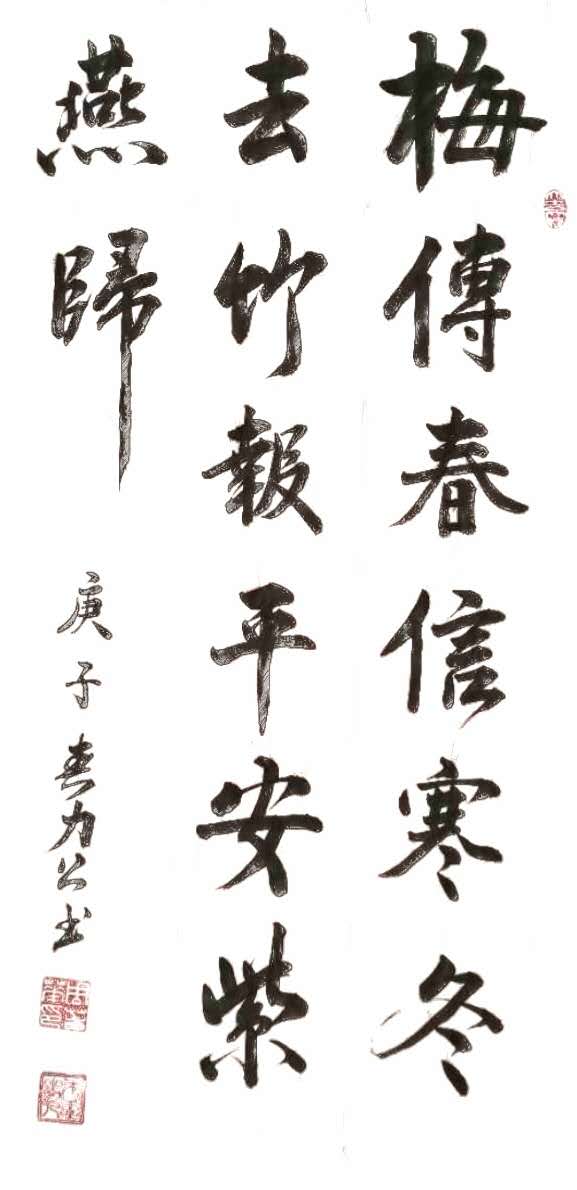 梅傳春信寒冬
去竹報平安紫
燕歸
庚子春力公书